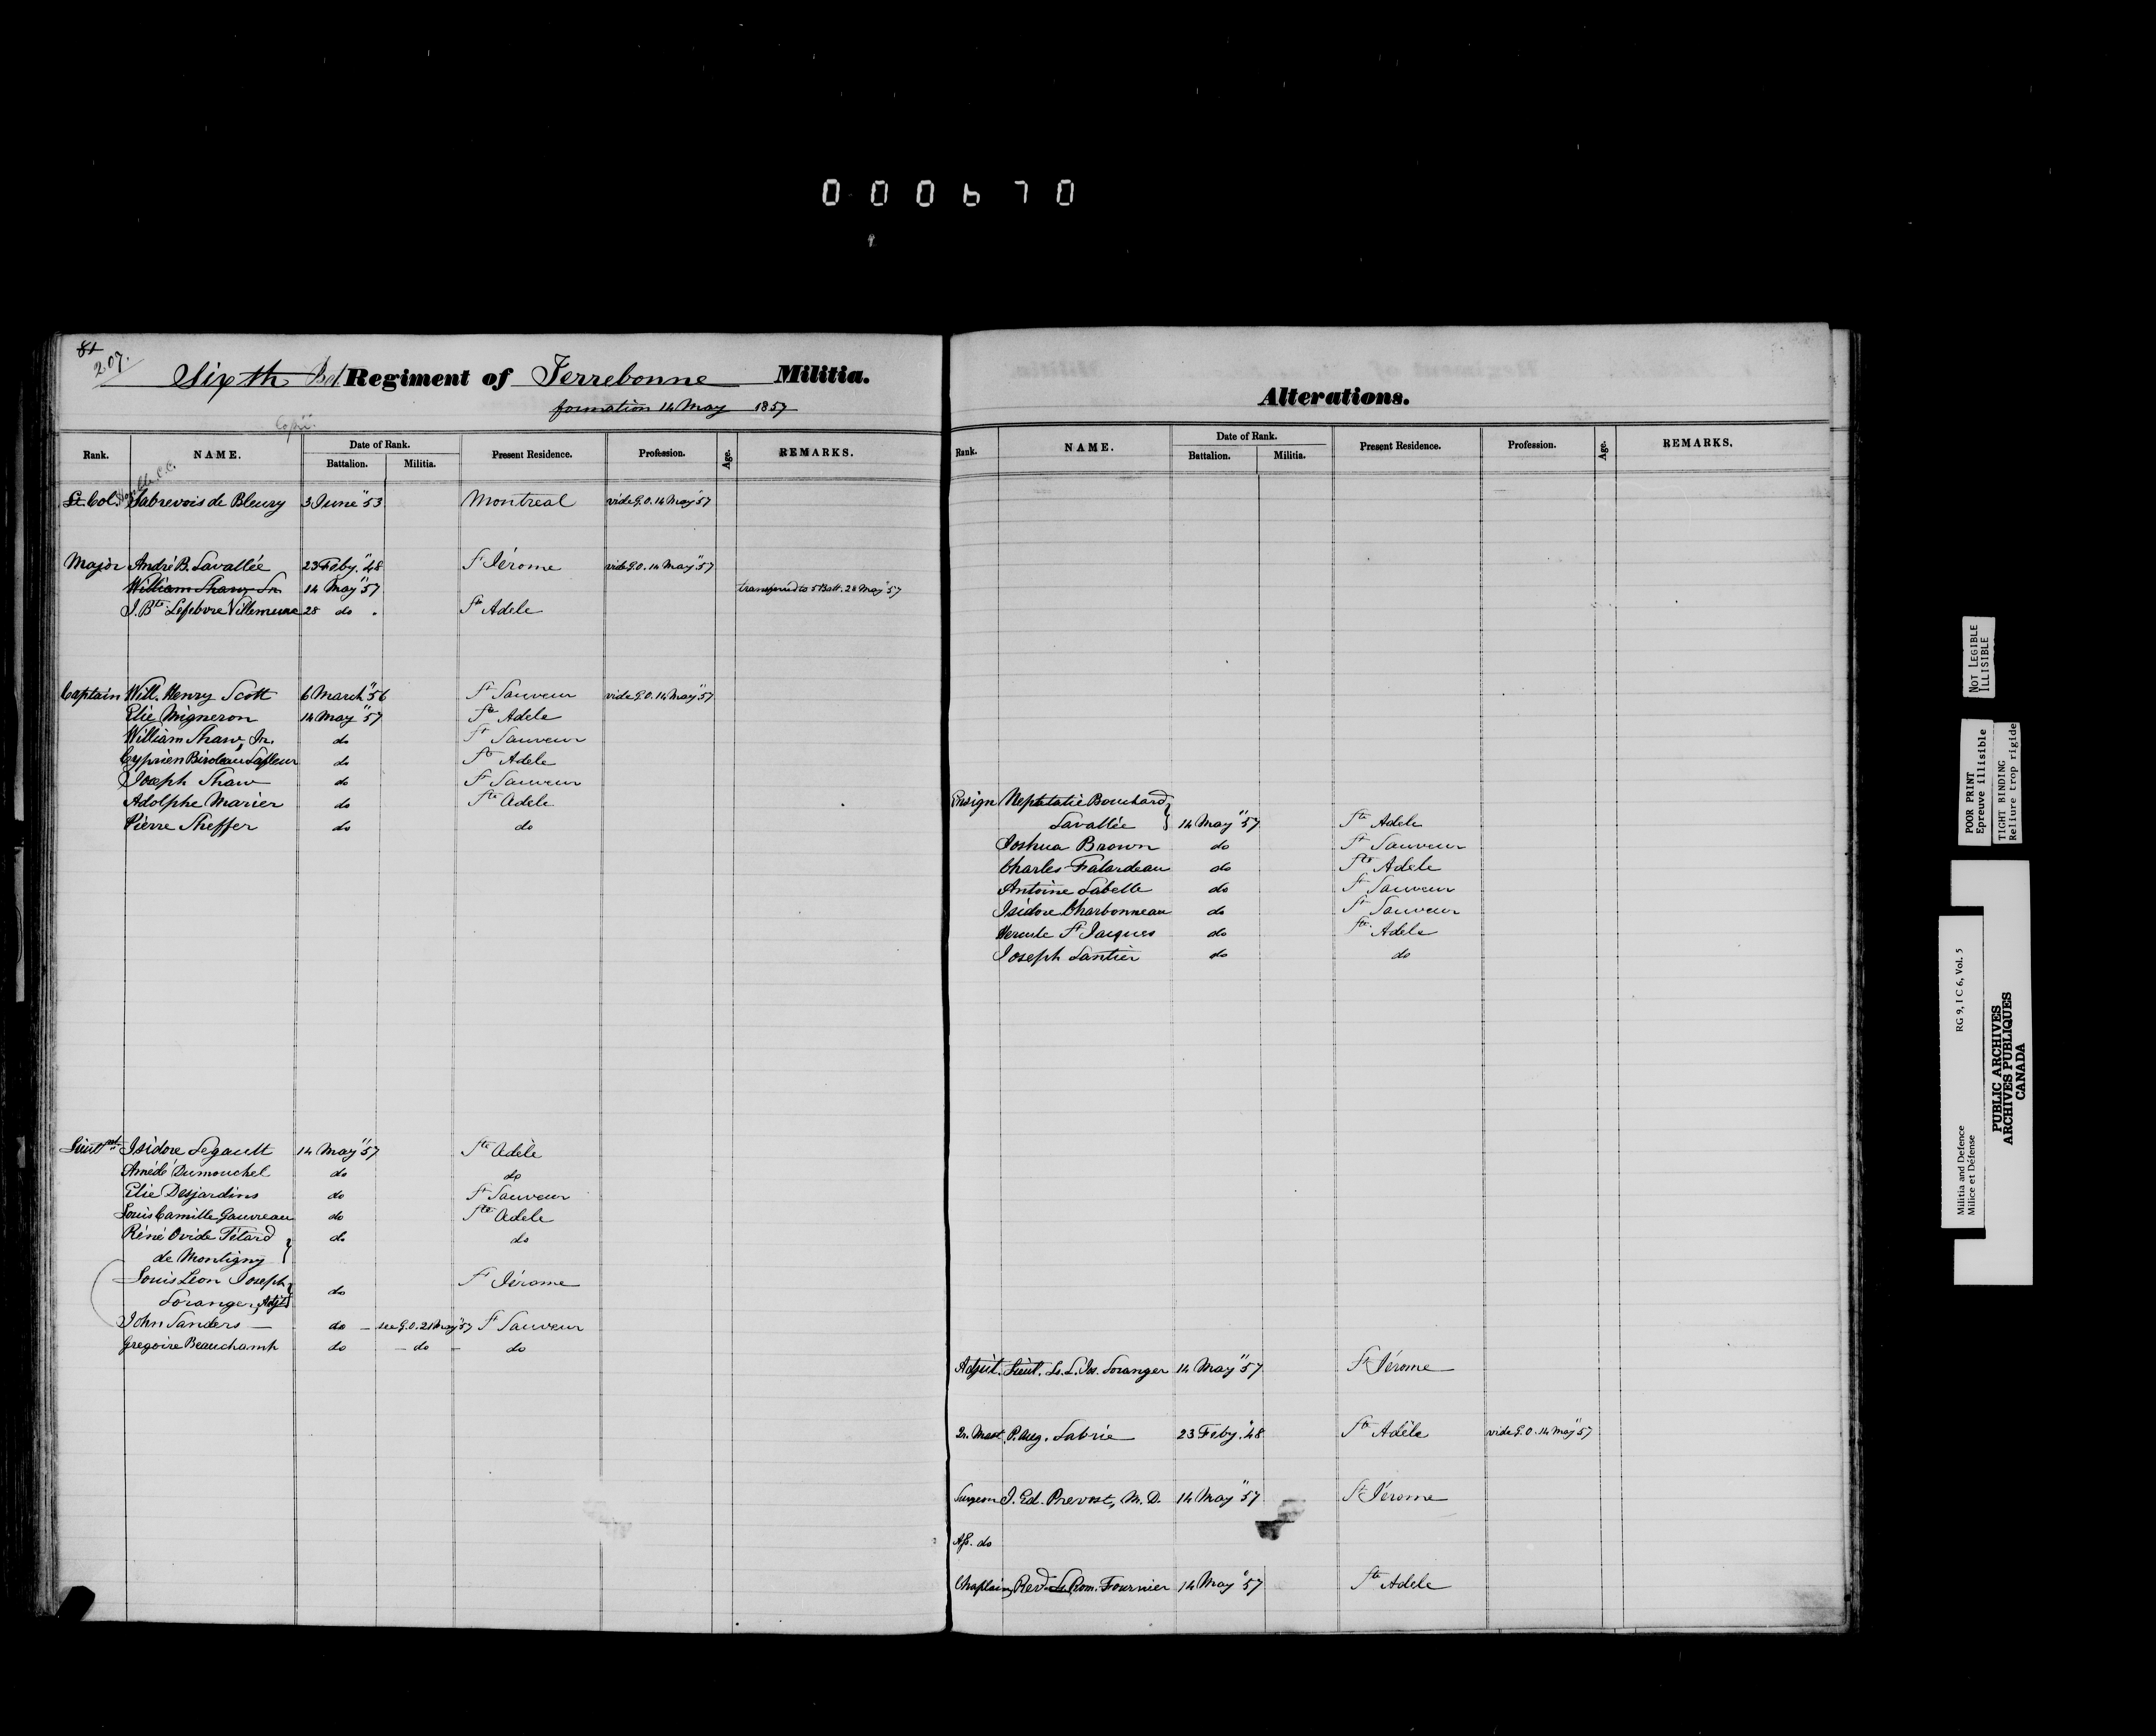 000670
81
207.
Sixth Bat Regiment of Terrebonne Militia.
formation 14 May 1857
Rank. NAME. Date of Rank. Present Residence. Profession. Age. REMARKS.
Battalion. Militia.
Lt. Col. Sabrevois de Bleury 3 June "53 Montreal vide G.O. 14 May "57
Major André B. Lavallée 23 Feby. "48 St Jérome vide G.O. 14 May "57
William Shaw, Sr. 14 May "57 transferred to 5 Batt. 28 May "57
J. Bte Lefebvre Villemure 28 do . Ste Adele
Captain Will. Henry Scott 6 March "56 St Sauveur vide G.O. 14 May "57
Elie Migneron 14 May "57 Ste Adele
William Shaw, Jr. do St Sauveur
Cyprien Biroleau Lafleur do Ste Adele
Joseph Shaw do St Sauveur
Adolphe Marier do Ste Adele
Pierre Sheffer do do
Lieutnt Isidore Legault 14 May "57 Ste Adèle
Amédé Dumouchel do do
Elie Desjardins do St Sauveur
Louis Camille Gauvreau do Ste Adele
Réné Ovide Tétard do do
de Montigny }
Louis Leon Joseph St Jérome
Loranger, Adjt } do
John Sanders — do — see G.O. 21 May "57 St Sauveur
Gregoire Beauchamp do — do — do
Alterations.
Rank. NAME. Date of Rank. Present Residence. Profession. Age. REMARKS.
Battalion. Militia.
Ensign Neptatalie Bouchard }
Lavallée 14 May "57 Ste Adele
Joshua Brown do St Sauveur
Charles Falardeau do Ste Adele
Antoine Labelle do St Sauveur
Isidore Charbonneau do St Sauveur
Hercule St Jacques do Ste Adele
Joseph Lantier do do
Adjut. Lieut. Ls. L. Jos. Loranger 14 May "57 St Jérome
Qr. Mast. P. Aug. Labrie 23 Feby. "48 Ste Adèle vide G.O. 14 May "57
Surgeon J. Ed. Prevost, M.D. 14 May "57 St Jérome
Ass. do
Chaplain, Revd Rom. Fournier 14 May "57 Ste Adele
NOT LEGIBLE
ILLISIBLE
POOR PRINT
Epreuve illisible
TIGHT BINDING
Reliure trop rigide
Militia and Defence RG 9, I C 6, Vol. 5
Milice et Défense
PUBLIC ARCHIVES
ARCHIVES PUBLIQUES
CANADA